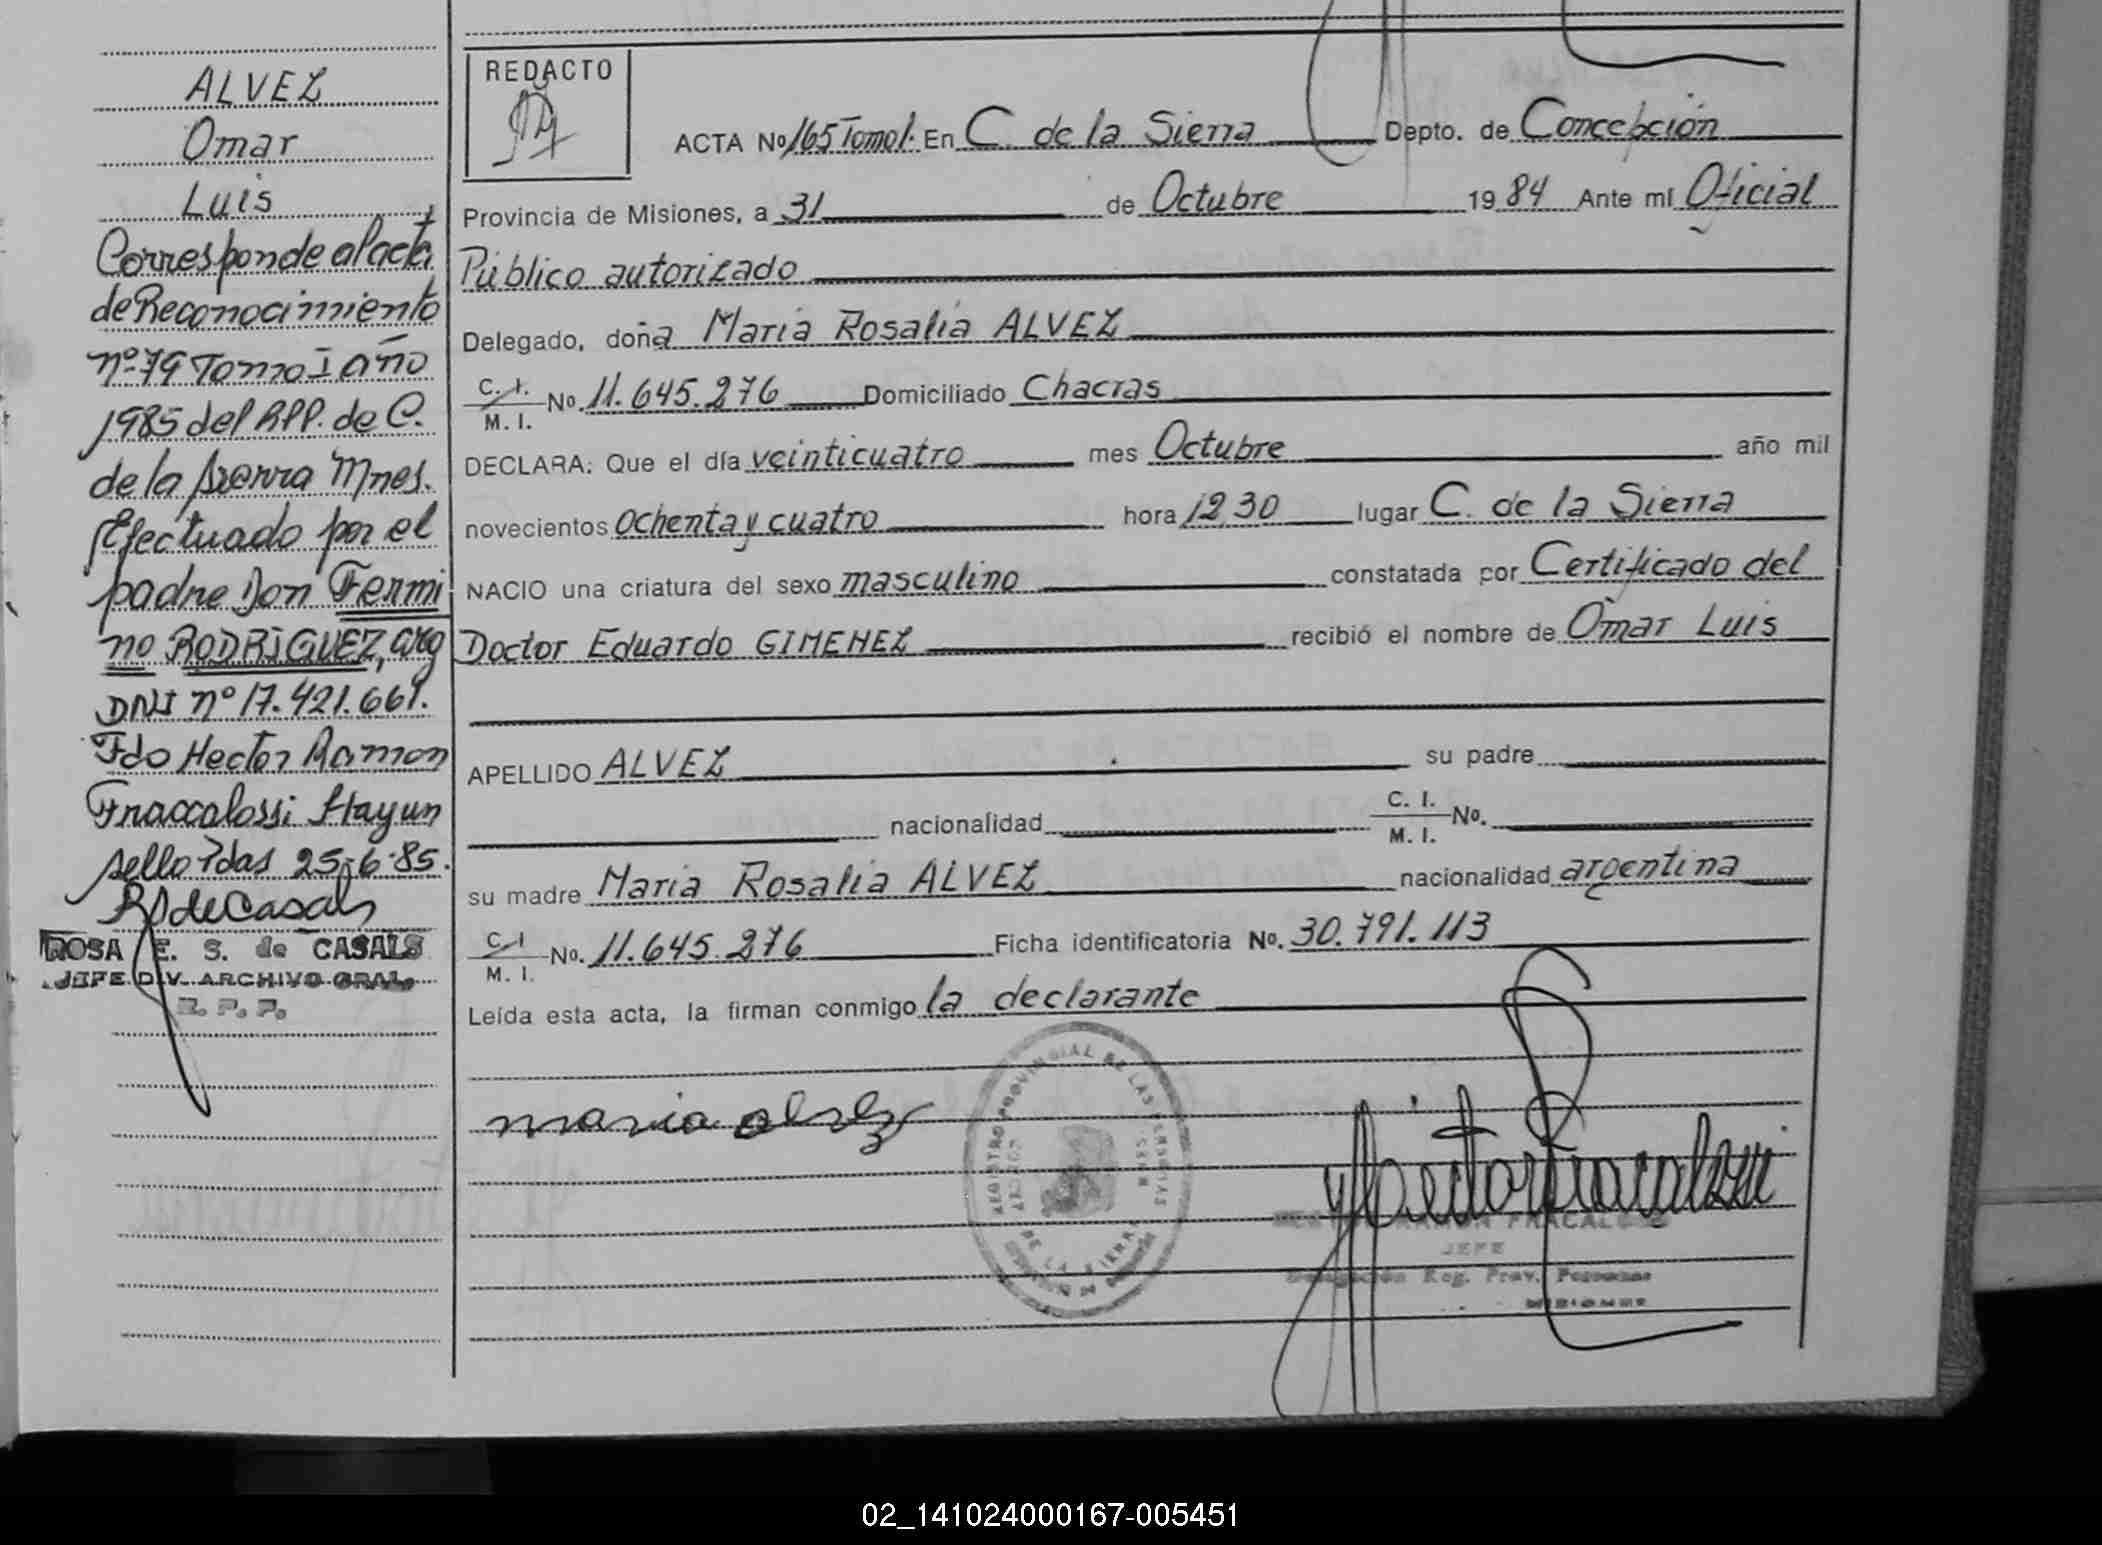 ALVEZ
Omar
Luis
Corresponde al acta
de Reconocimiento
nº 79 Tomo I año
1985 del RPP. de C.
de la Sierra Mnes.
Efectuado por el
padre Don Fermi
no RODRIGUEZ, arg
DNI nº 17.421.661.
Fdo Hector Ramon
Fraccalossi Hayun
sello Pdas 25-6-85.
RSdeCasals
ROSA E. S. de CASALS
JEFE DIV. ARCHIVO GRAL.
R. P. P.
REDACTO
ACTA No 165 Tomo I. En C. de la Sierra Depto. de Concepción
Provincia de Misiones, a 31 de Octubre 19 84 Ante mí Oficial
Público autorizado
Delegado, doña Maria Rosalia ALVEZ
C. I.
M. I. No. 11.645.276 Domiciliado Chacras
DECLARA: Que el día veinticuatro mes Octubre año mil
novecientos ochenta y cuatro hora 12,30 lugar C. de la Sierra
NACIO una criatura del sexo masculino constatada por Certificado del
Doctor Eduardo GIMENEZ recibió el nombre de Omar Luis
APELLIDO ALVEZ su padre
nacionalidad C. I.
M. I. No.
su madre Maria Rosalia ALVEZ nacionalidad argentina
C. I
M. I. No. 11.645.276 Ficha identificatoria No. 30.791.113
Leída esta acta, la firman conmigo la declarante
maria alvez
REGISTRO PROVINCIAL DE LAS PERSONAS
DE LA SIERRA
Hector Fracalossi
RAMON FRACALOSSI
JEFE
Delegación Reg. Prov. Personas
MISIONES
02_141024000167-005451